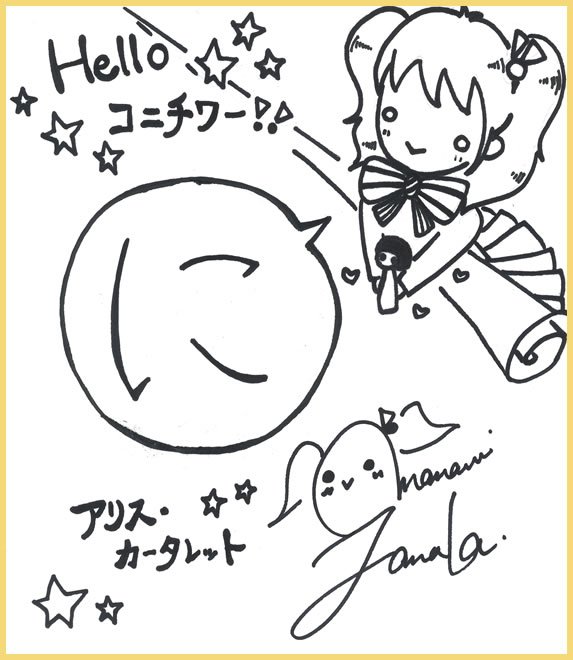 Hello
コニチワー!!
に
アリス・
カータレット
manami
Tanaka.